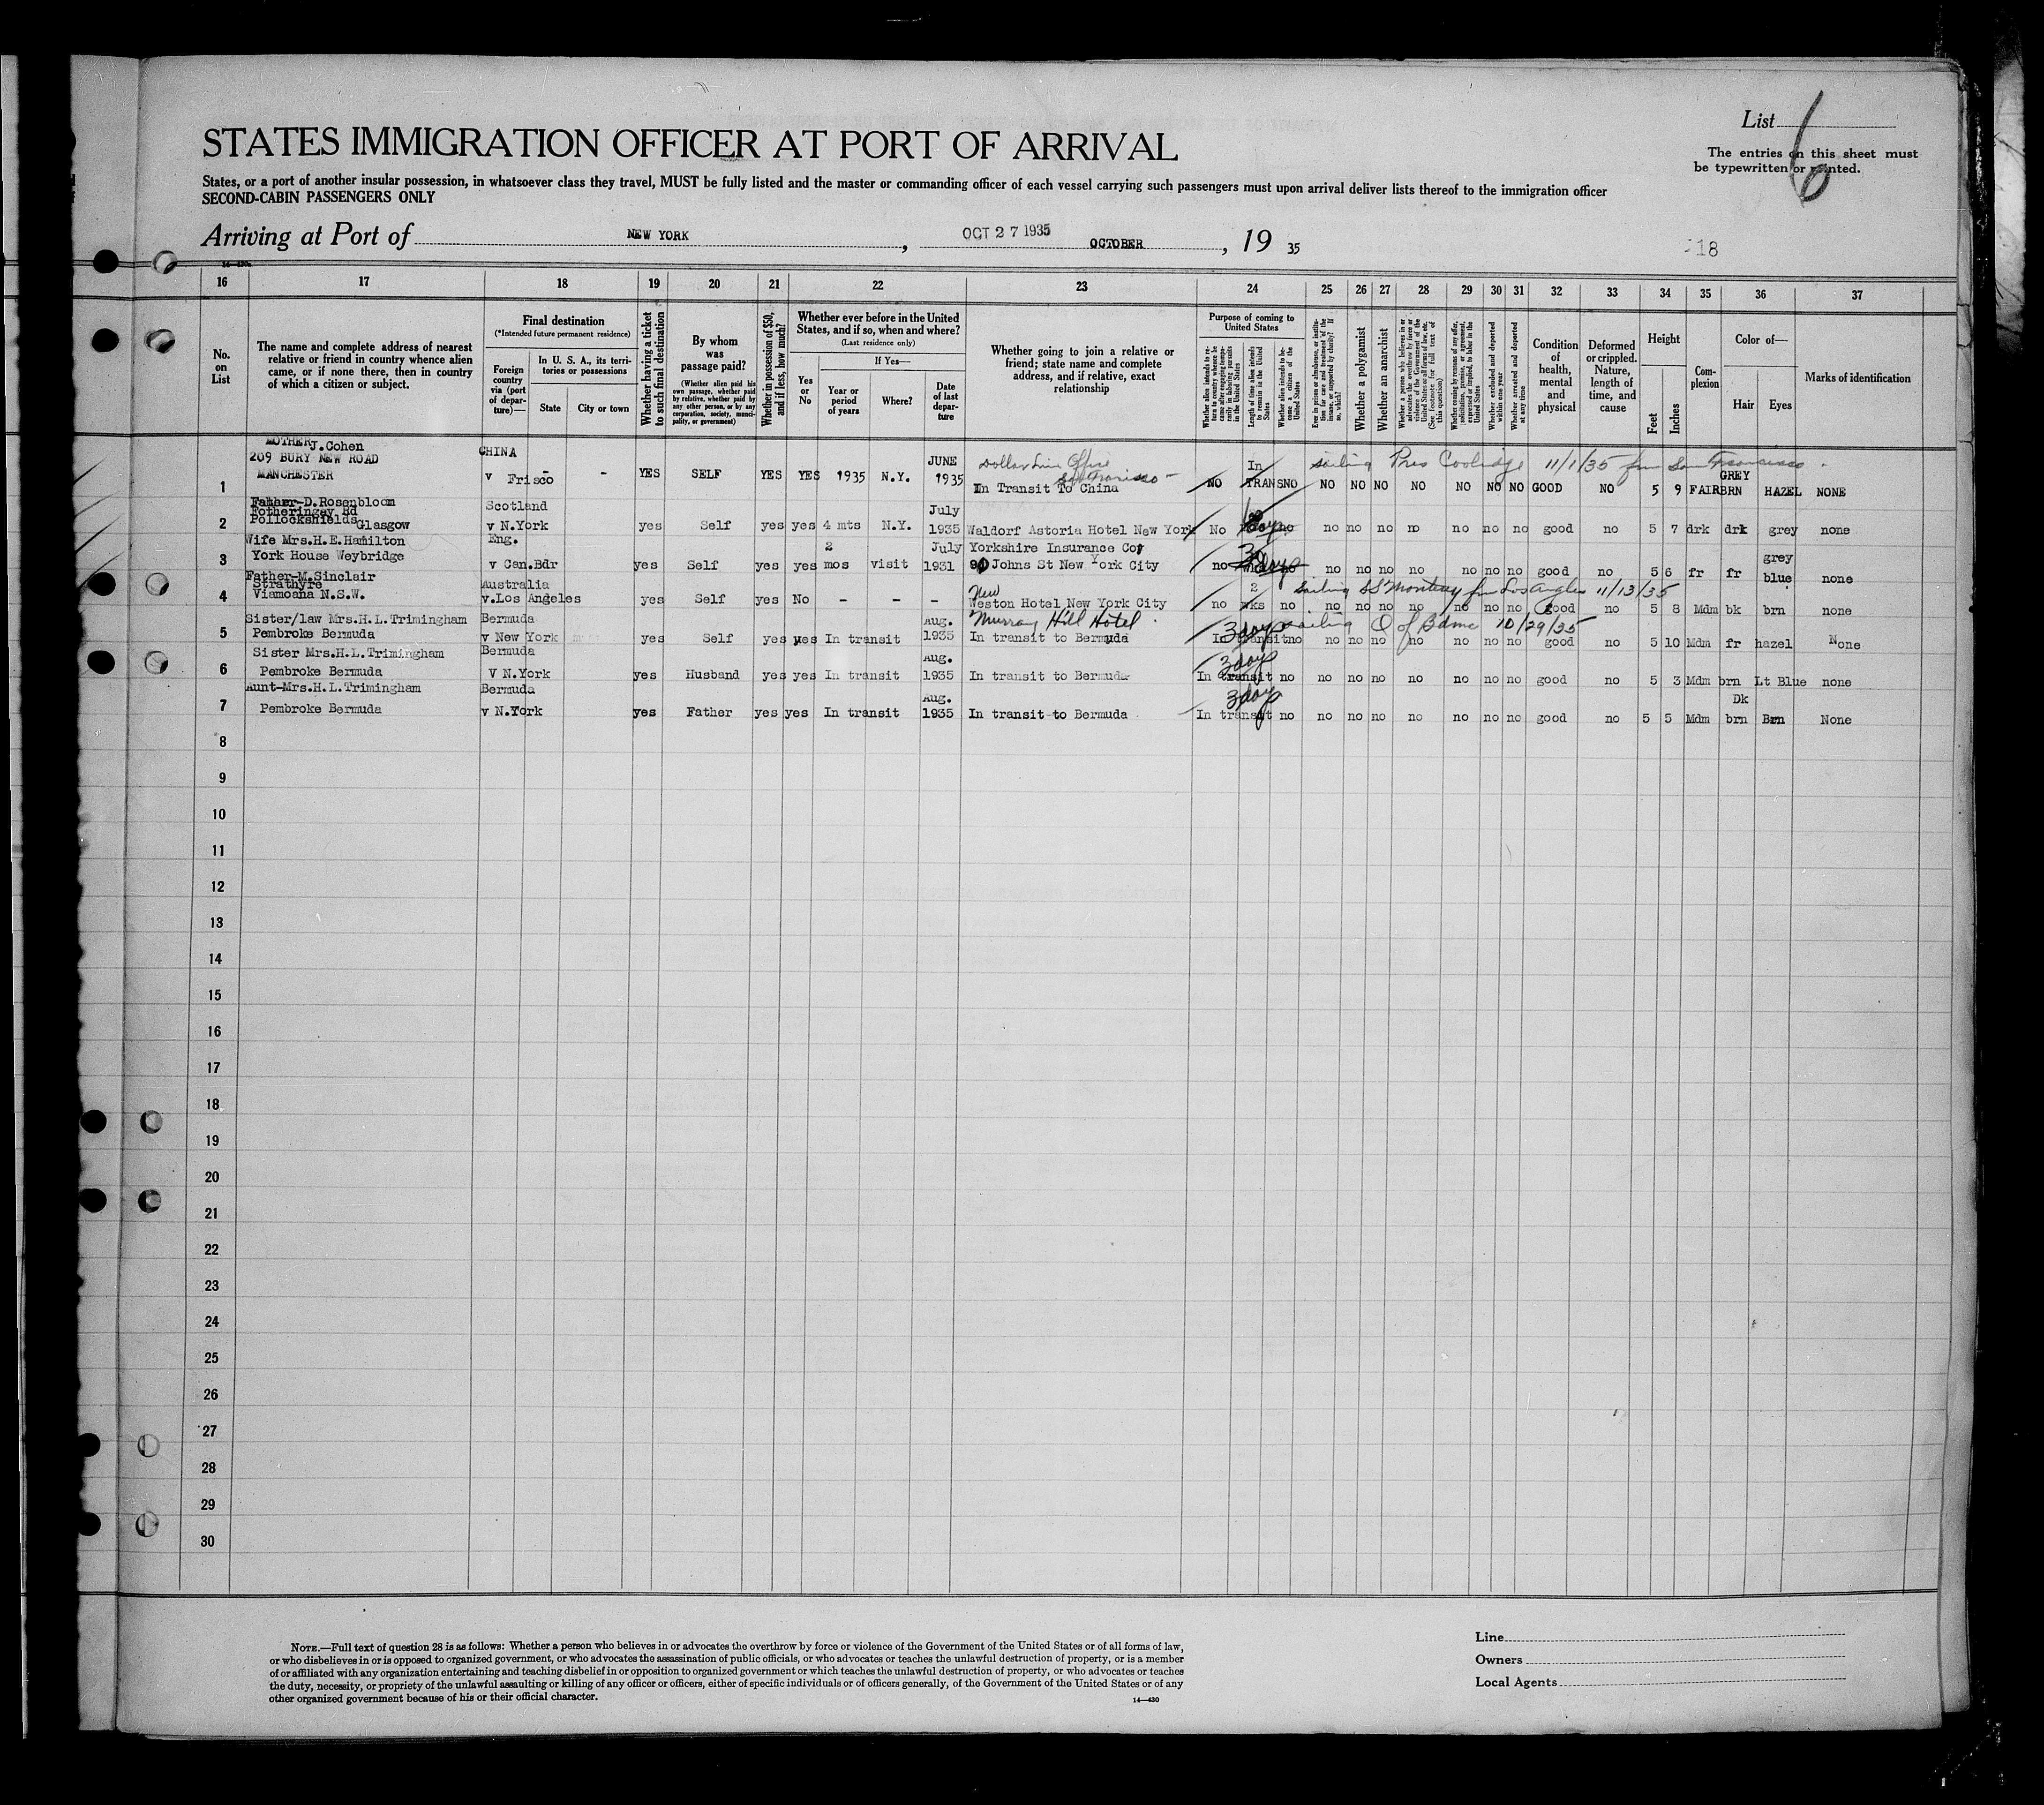 List 6
STATES IMMIGRATION OFFICER AT PORT OF ARRIVAL
The entries on this sheet must
be typewritten or printed.
States, or a port of another insular possession, in whatsoever class they travel, MUST be fully listed and the master or commanding officer of each vessel carrying such passengers must upon arrival deliver lists thereof to the immigration officer
SECOND-CABIN PASSENGERS ONLY
Arriving at Port of NEW YORK, OCT 27 1935 OCTOBER, 19 35
18
16 17 18 19 20 21 22 23 24 25 26 27 28 29 30 31 32 33 34 35 36 37
No. on List
The name and complete address of nearest relative or friend in country whence alien came, or if none there, then in country of which a citizen or subject.
Final destination
(*Intended future permanent residence)
Foreign country via (port of departure)—
In U. S. A., its territories or possessions
State
City or town
Whether having a ticket to such final destination
By whom was passage paid?
(Whether alien paid his own passage, whether paid by relative, whether paid by any other person, or by any corporation, society, municipality, or government)
Whether in possession of $50, and if less, how much?
Whether ever before in the United States, and if so, when and where?
(Last residence only)
If Yes—
Yes or No
Year or period of years
Where?
Date of last departure
Whether going to join a relative or friend; state name and complete address, and if relative, exact relationship
Purpose of coming to United States
Whether alien intends to return to country whence he came after engaging temporarily in laboring pursuits in the United States
Length of time alien intends to remain in the United States
Whether alien intends to become a citizen of the United States
Ever in prison or almshouse, or institution for care and treatment of the insane, or supported by charity? If so, which?
Whether a polygamist
Whether an anarchist
Whether a person who believes in or advocates the overthrow by force or violence of the Government of the United States or all forms of law, etc. (See footnote for full text of this question)
Whether coming by reason of any offer, solicitation, promise, or agreement, expressed or implied, to labor in the United States
Whether excluded and deported within one year
Whether arrested and deported at any time
Condition of health, mental and physical
Deformed or crippled. Nature, length of time, and cause
Height
Feet
Inches
Complexion
Color of—
Hair
Eyes
Marks of identification
MOTHER J.Cohen CHINA JUNE Dollar Line Office In sailing Pres Coolidge 11/1/35 fm San Francisco
209 BURY NEW ROAD San Francisco GREY
1 MANCHESTER v Frisco - - YES SELF YES YES 1935 N.Y. 1935 In Transit To China NO TRANS NO NO NO NO NO NO NO NO GOOD NO 5 9 FAIR BRN HAZEL NONE
Father-D.Rosenbloom Scotland July
Fotheringay Rd
2 Pollockshields Glasgow v N.York yes Self yes yes 4 mts N.Y. 1935 Waldorf Astoria Hotel New York No no no no no no no no no good no 5 7 drk drk grey none
Wife Mrs.H.E.Hamilton Eng. 2 July Yorkshire Insurance Co, grey
3 York House Weybridge v Can.Bdr yes Self yes yes mos visit 1931 90 Johns St New York City no 30 days no no no no no no no good no 5 6 fr fr blue none
Father-M.Sinclair Australia New 2 sailing SS Monterey fm Los Angles 11/13/35
Strathyre
4 Viamoana N.S.W. v.Los Angeles yes Self yes No - - - Weston Hotel New York City no wks no no no no no no no no good no 5 8 Mdm bk brn none
Sister/law Mrs.H.L.Trimingham Bermuda Aug. Murray Hill Hotel 3 days sailing Q of Bdme 10/29/35
5 Pembroke Bermuda v New York yes Self yes yes In transit 1935 In transit to Bermuda In transit no no no no no no no no good no 5 10 Mdm fr hazel None
Sister Mrs.H.L.Trimingham Bermuda Aug. 3 days
6 Pembroke Bermuda V N.York yes Husband yes yes In transit 1935 In transit to Bermuda In transit no no no no no no no no good no 5 3 Mdm brn Lt Blue none
Aunt-Mrs.H.L.Trimingham Bermuda Aug. 3 days Dk
7 Pembroke Bermuda v N.York yes Father yes yes In transit 1935 In transit to Bermuda In transit no no no no no no no no good no 5 5 Mdm brn Brn None
8
9
10
11
12
13
14
15
16
17
18
19
20
21
22
23
24
25
26
27
28
29
30
NOTE.—Full text of question 28 is as follows: Whether a person who believes in or advocates the overthrow by force or violence of the Government of the United States or of all forms of law,
or who disbelieves in or is opposed to organized government, or who advocates the assassination of public officials, or who advocates or teaches the unlawful destruction of property, or is a member
of or affiliated with any organization entertaining and teaching disbelief in or opposition to organized government or which teaches the unlawful destruction of property, or who advocates or teaches
the duty, necessity, or propriety of the unlawful assaulting or killing of any officer or officers, either of specific individuals or of officers generally, of the Government of the United States or of any
other organized government because of his or their official character.
14—430
Line
Owners
Local Agents